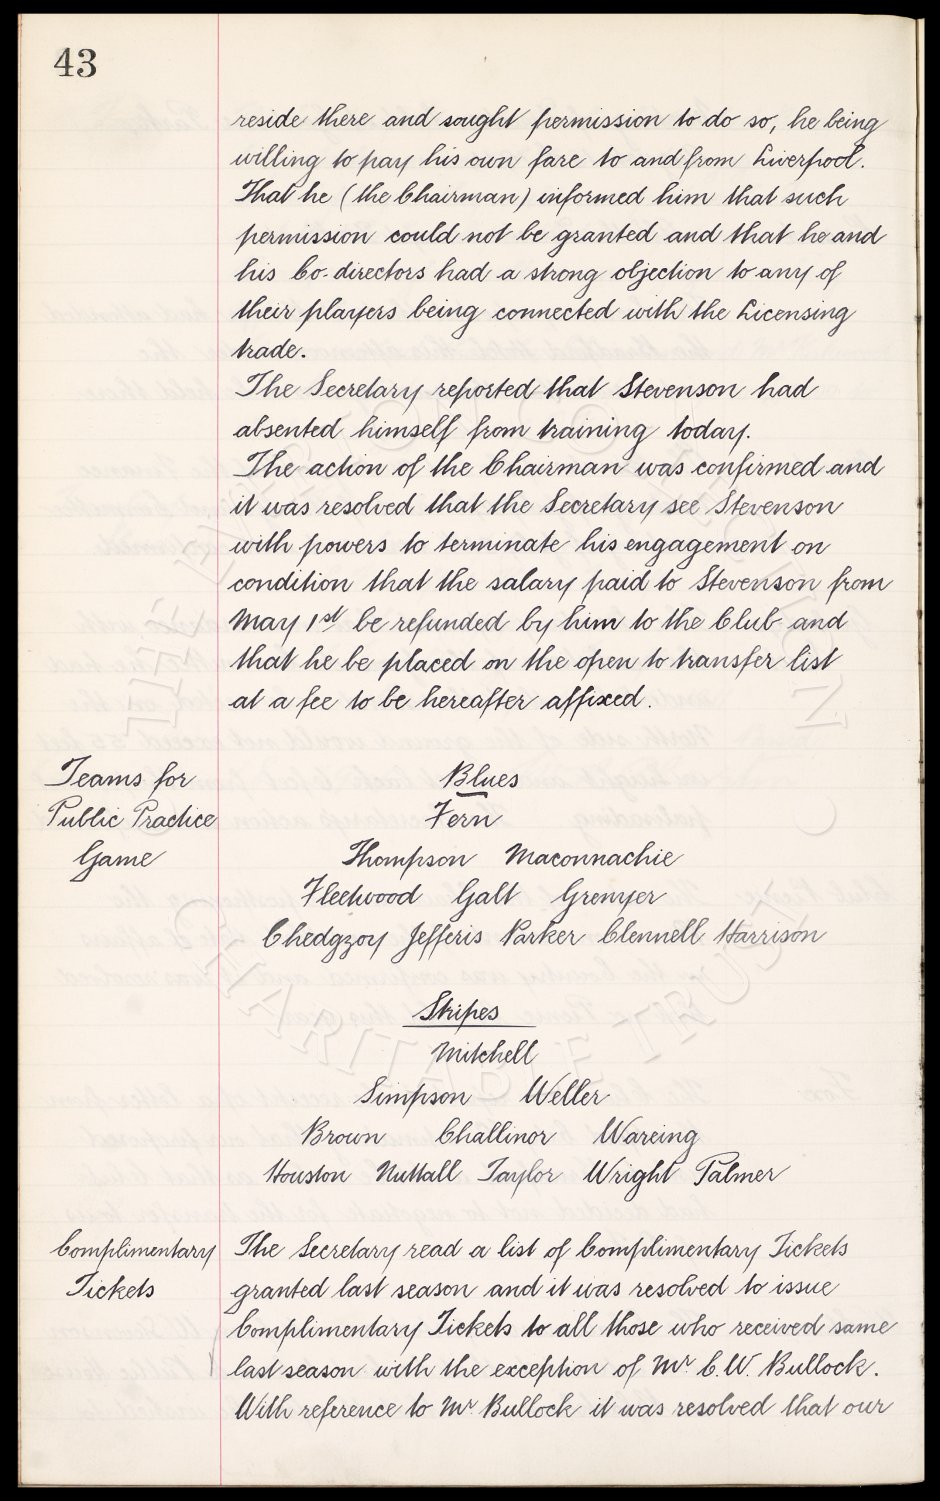 43
reside there and sought permission to do so, he being
willing to pay his own fare to and from Liverpool.
That he (the Chairman) informed him that such
permission could not be granted and that he and
his Co-directors had a strong objection to any of
their players being connected with the Licensing
trade.
The Secretary reported that Stevenson had
absented himself from training today.
The action of the Chairman was confirmed and
it was resolved that the Secretary see Stevenson
with powers to terminate his engagement on
condition that the salary paid to Stevenson from
May 1st be refunded by him to the Club and
that he be placed on the open to transfer list
at a fee to be hereafter affixed.
Teams for
Public Practice
Game
Blues
Fern
Thompson Maconnachie
Fleetwood Galt Grenyer
Chedgzoy Jefferis Parker Clennell Harrison
Stripes
Mitchell
Simpson Weller
Brown Challinor Wareing
Houston Nuttall Taylor Wright Palmer
Complimentary
Tickets
The Secretary read a list of Complimentary Tickets
granted last season and it was resolved to issue
Complimentary Tickets to all those who received same
last season with the exception of Mr C. W. Bullock.
With reference to Mr Bullock it was resolved that our